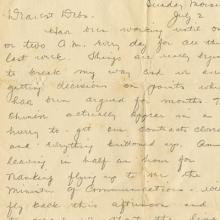 Sunday Morni
July 2
Dearest Debs.
Have been working until one
or two A.M. every day for all the
last week. Things are really
to break my way and we are
getting decisions on points whi
has been argued for months. T
Chinese actually appear in a
hurry to get our contracts close
and everything buttoned up. Am
leaving in half an hour for
Nanking flying up to see the
Minister of Communications. Will
fly back this afternoon and